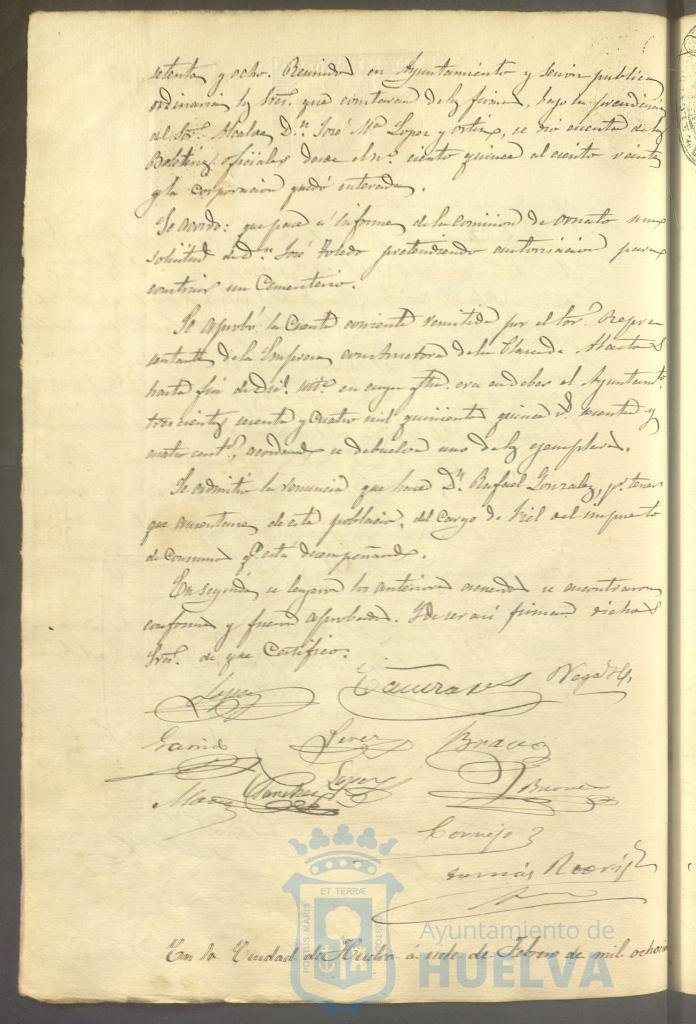 setenta y ocho. Reunidos en Ayuntamiento y sesion publica
ordinaria los Sres. que constaran de las firmas, bajo la presidencia
del Sor. Alcalde D.n José Ma Lopez y Ortiz, se dió cuenta de los
Boletines oficiales desde el no. ciento quince al ciento veinte
y la corporacion quedó enterada.
Se acordó: que pase a informe de la comision de ornato una
solicitud de D.n José Toledo pretendiendo autorizacion para
construir un Cementerio.
Se aprobó la Cuenta corriente remitida por el Sor. Repre
sentante de la Empresa constructora de la Plaza de Abastos
hasta fin de Dic. en cuya era en deber el Ayuntamto.
trescientos sesenta y cuatro mil quinientos quince rs. sesenta y
cuatro cents., acordando se devuelva uno de los ejemplares.
Se admitió la renuncia que hace Dn. Rafael Gonzalez, pr. tener
que ausentarse de esta poblacion, del cargo de Fiel del impuesto
de consumos q. está desempeñando.
En seguida se leyeron los anteriores acuerdos se encontraron
conformes y fueron aprobados. Y de ser asi firman dichos
Sres. de que Certifico.
Lopez
Garrido Perez Bravo
Sanchez Lopez
Cornejo
Tomás
ET TERRÆ
PORTUS MARIS
CUSTODIA
Ayuntamiento de
HUELVA
En la Ciudad de Huelva á siete de Febrero de mil ochoc